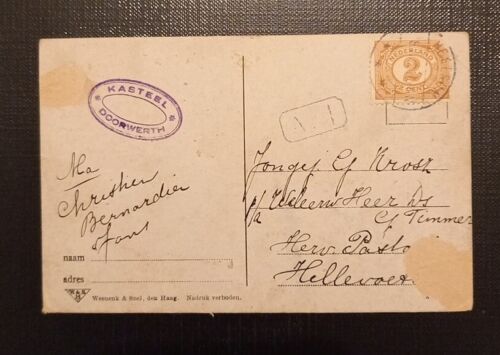 KASTEEL
DOORWERTH
NEDERLAND
2
CENT
Ma
Bernardier
naam
adres
Weenenk & Snel, den Haag. Nadruk verboden.
A 1
Jongej G
p/a Weleerw Heer Ds
G Timmer
Herv. Pasto
Hellevoet